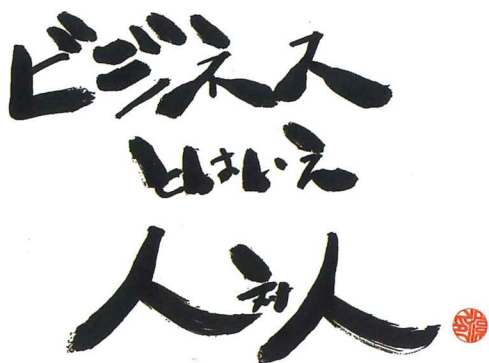 ビジネス
とはいえ
人対人